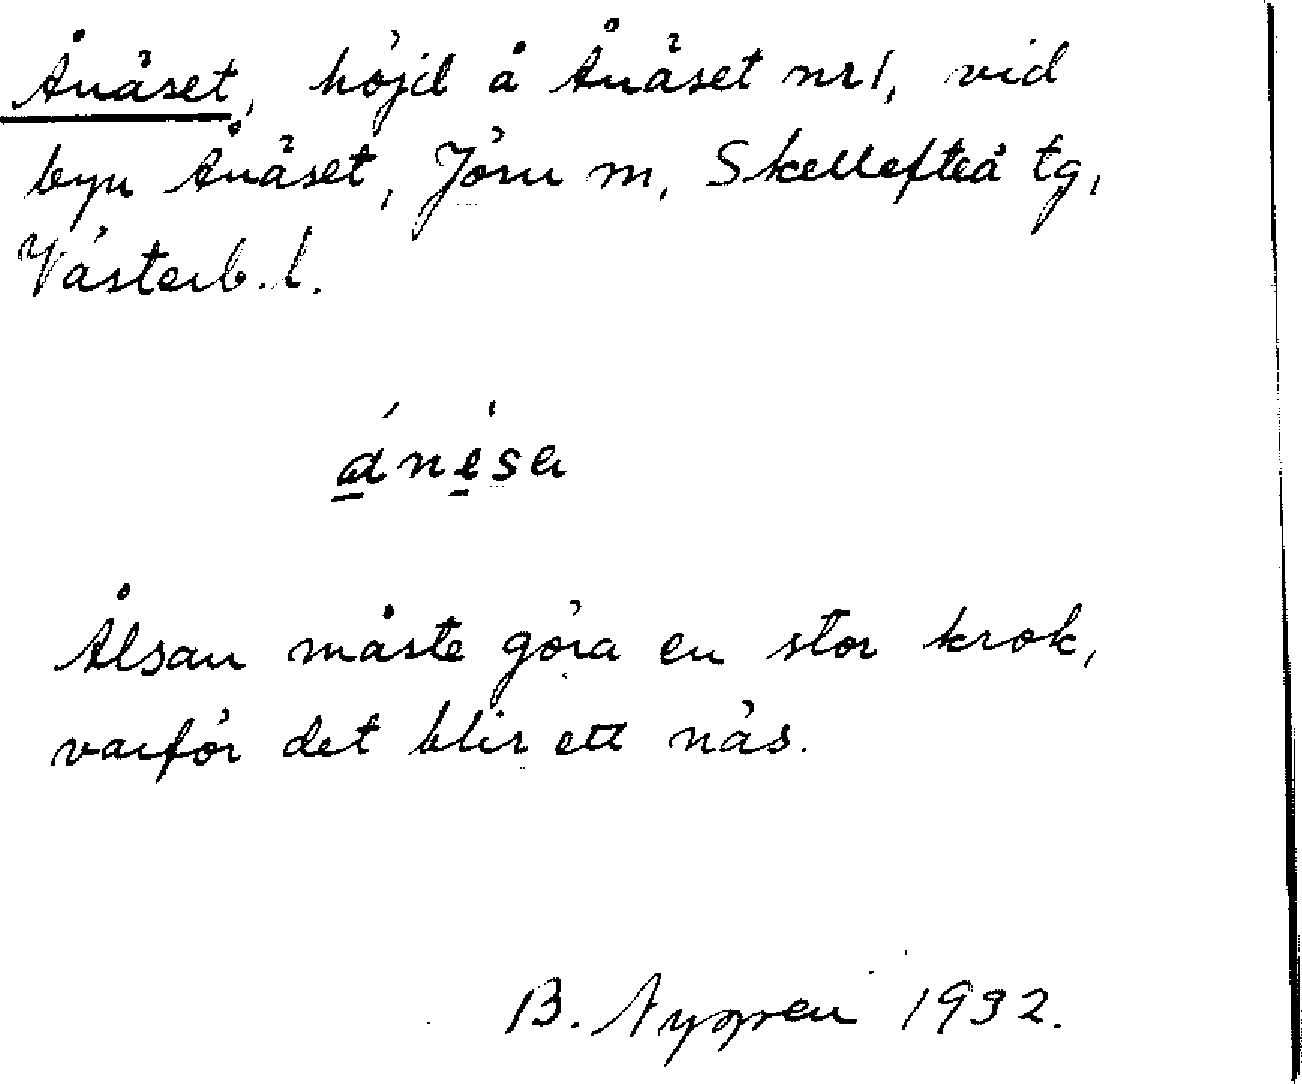 Ånäset, höjd å Ånäset nr 1, vid
byn Ånäset, Jörn m, Skellefteå tg,
Västerb. l.
ánésa
Ålsån måste göra en stor krok,
varför det blir ett näs.
B. Nygren 1932.